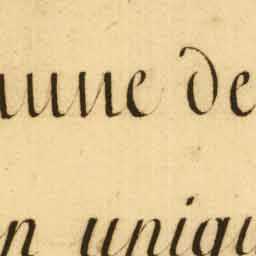 une de
n uniqu